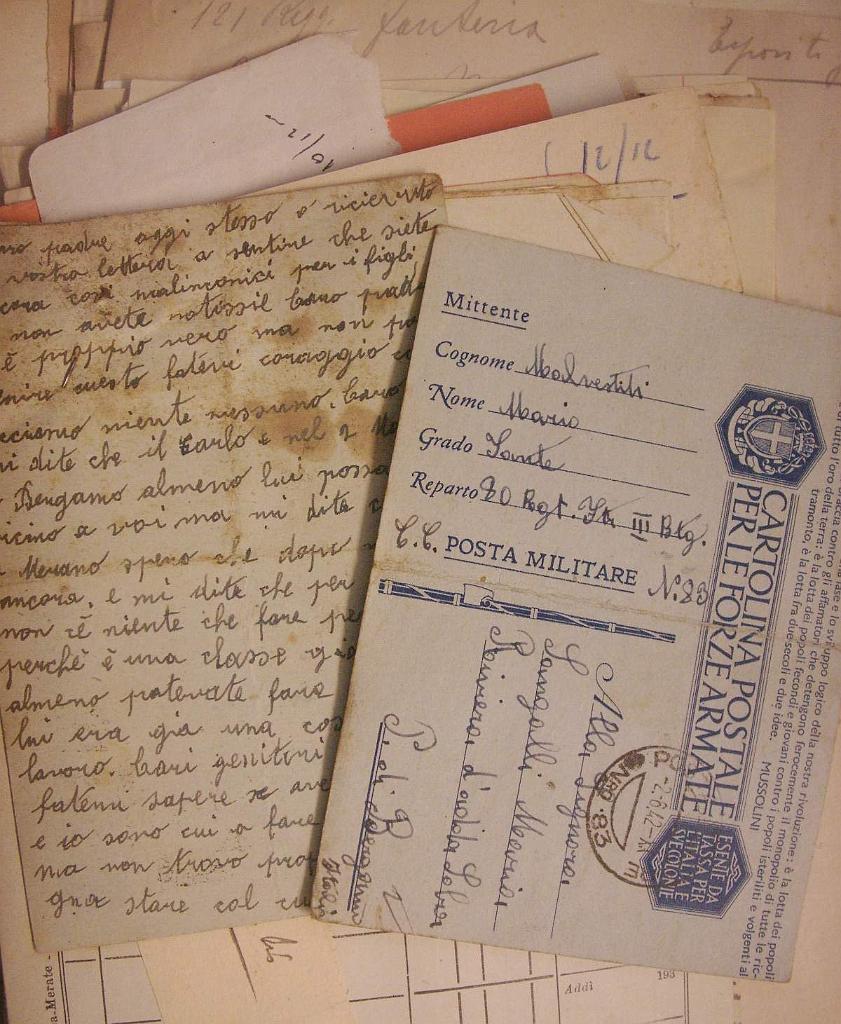 121 Regg. fanteria
10/12
12/12
padre aggi stesso o ricievuto
vostra lettera a sentire che siete
cosi malinconici per i figli
non avete notissie Caro
è proppio vero ma non
questo fatevi coraggio
niente nessuno. Caro
dite che il Carlo è nel 2
Bergamo almeno lui possa
a voi ma mi dite
Merano spero che dopo
ancora. e mi dite che per
non cè niente che fare
perchè è una classe
almeno potevate fare
lui era gia una
lavoro. Cari genitori
fatemi sapere se
e io sono cui a fare
ma non trovo
stare col
Mittente
Cognome Malvestiti
Nome Mario
Grado Fante
Reparto 80 Rgt. Ft. III Btg.
C.C. POSTA MILITARE N. 83
CARTOLINA POSTALE
PER LE FORZE ARMATE
ESENTE DA
TASSA PER
L'ITALIA
SVECOLIONE
Alla Signora
Sangalli Maria
Riviera d'adda
P. di Bergamo
Italia
PO
-2.6.42-
83
logico della nostra rivoluzione: è la lotta dei popoli
contro gli affamatori che detengono ferocemente il monopolio di tutte le ric-
di tutto l'oro della terra: è la lotta dei popoli fecondi e giovani contro i popoli isteriliti e volgenti al
tramonto, è la lotta fra due secoli e due idee. MUSSOLINI
Merate -
Addì
193